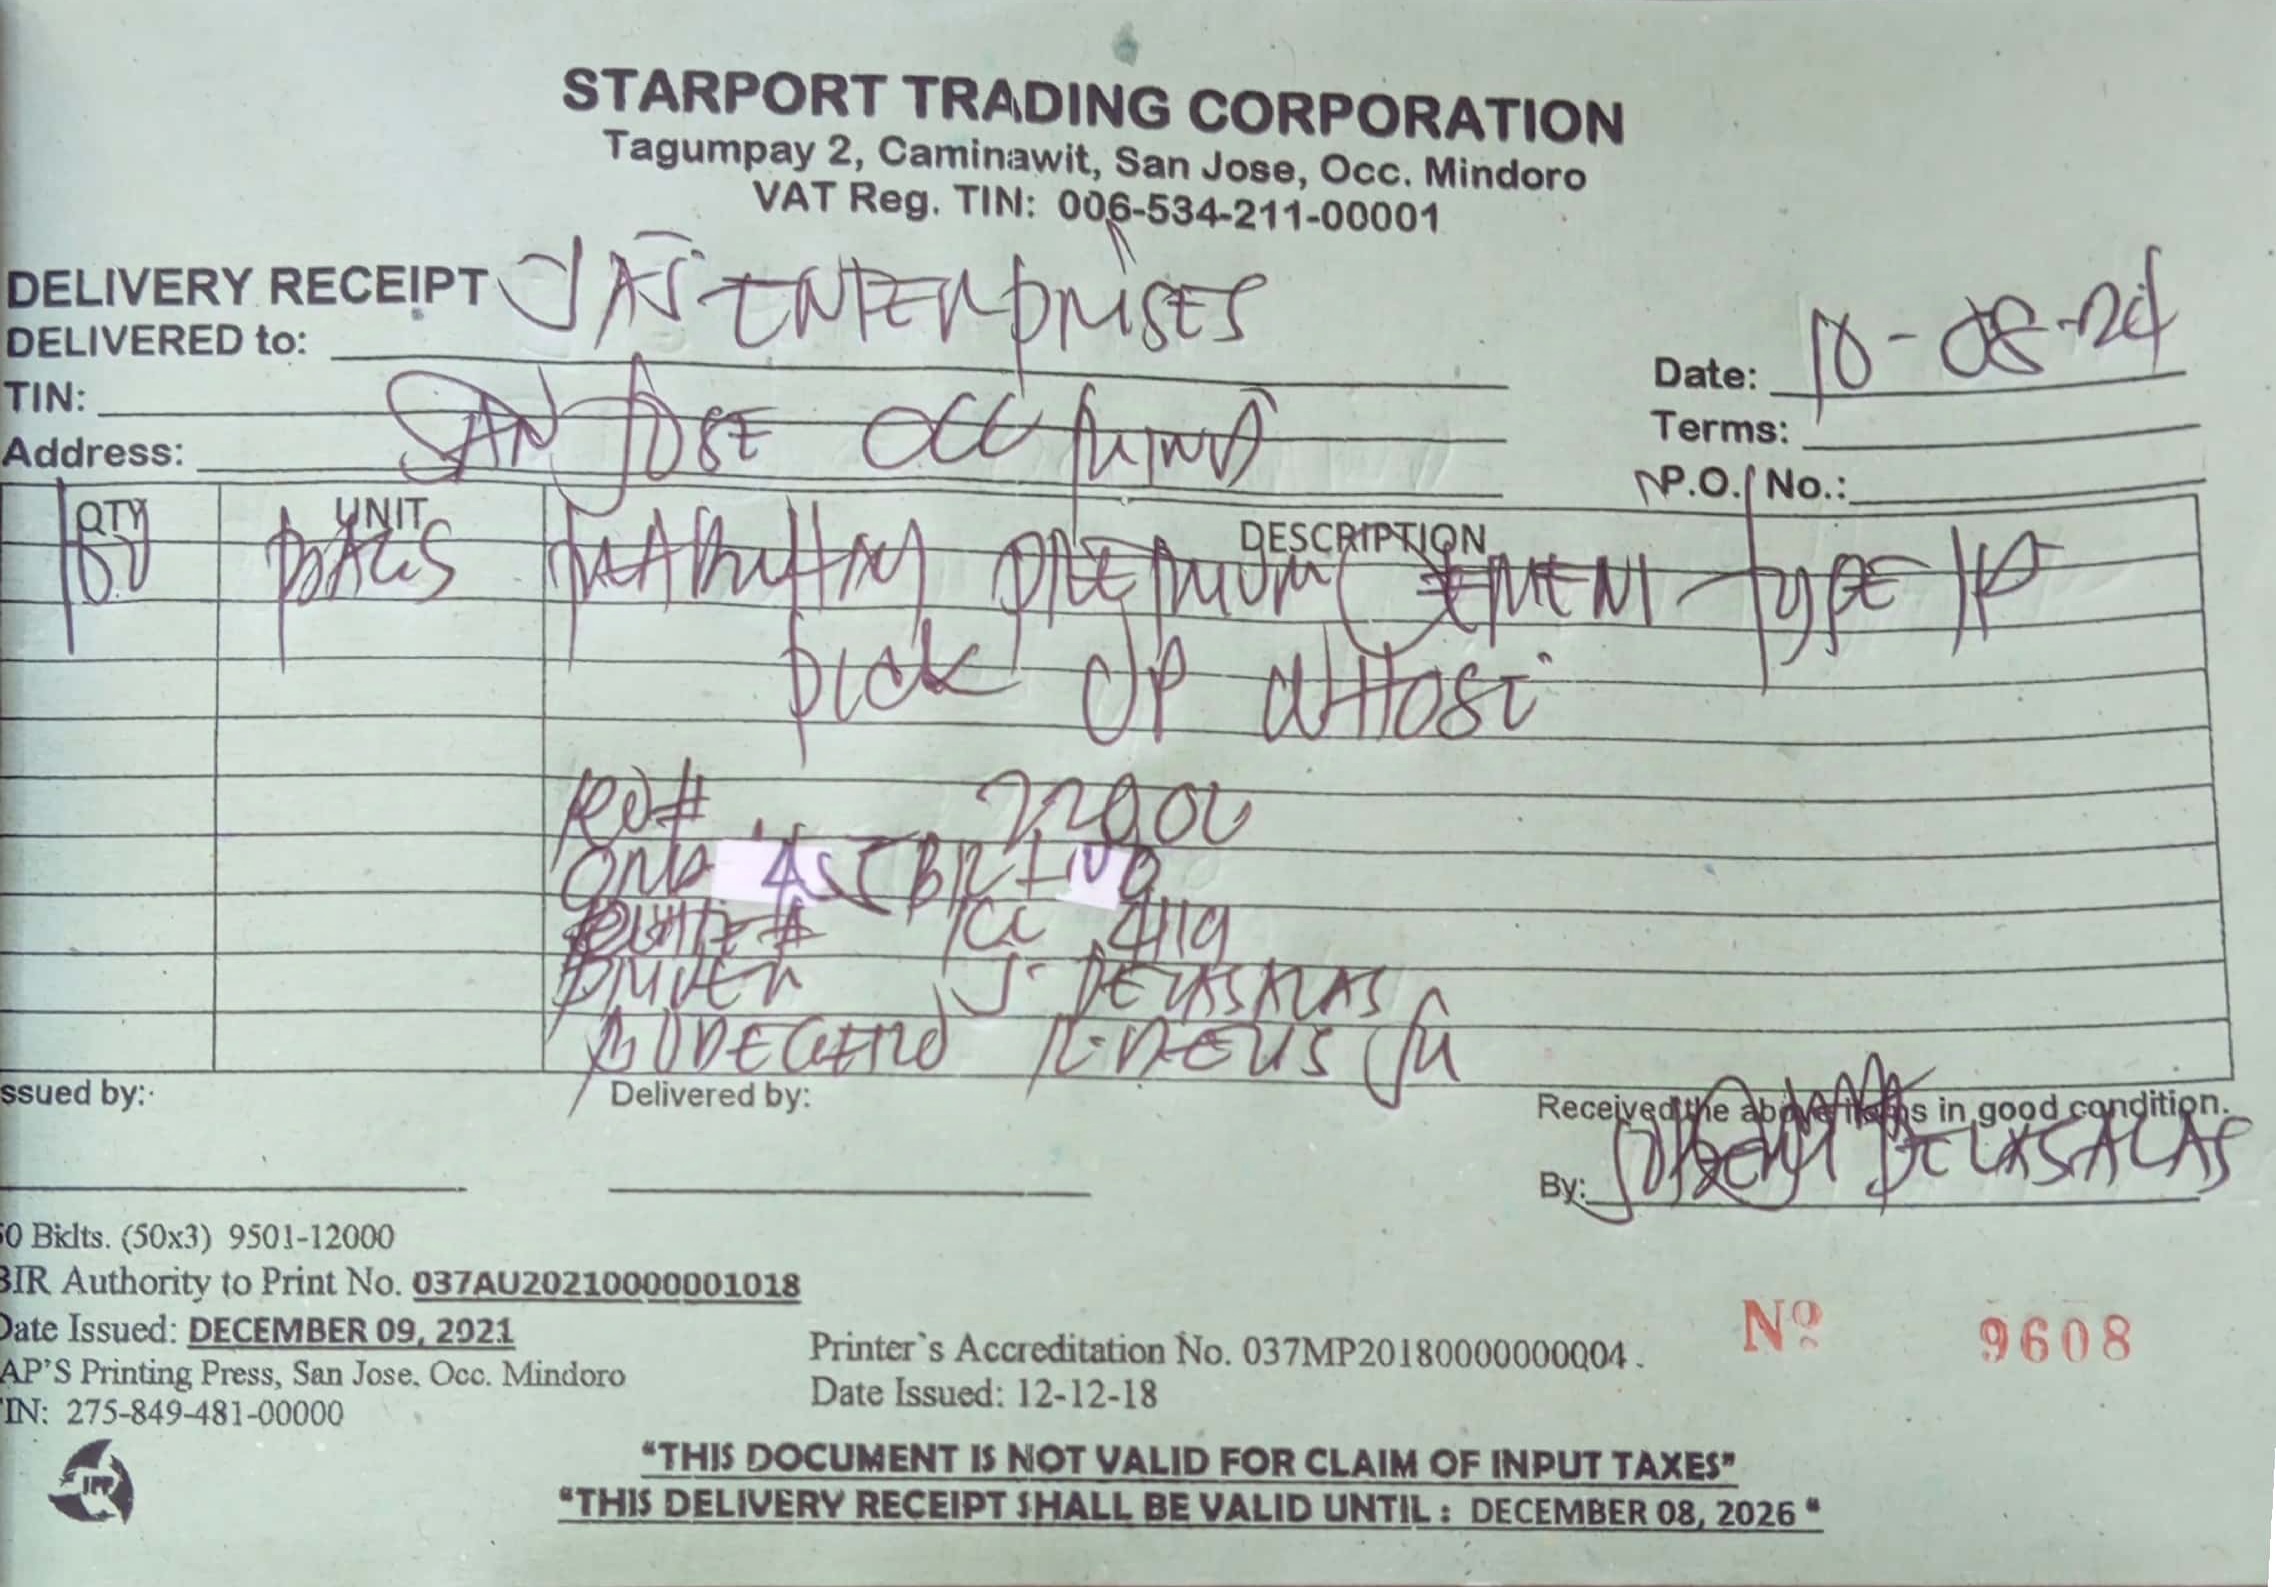 STARPORT TRADING CORPORATION
Tagumpay 2, Caminawit, San Jose, Occ. Mindoro
VAT Reg. TIN: 006-534-211-00001
DELIVERY RECEIPT
DELIVERED to: JAS ENTERPRISES
Date: 10-08-24
TIN:
Terms:
Address: SAN JOSE OCC
P.O. No.:
QTY UNIT DESCRIPTION
BAGS PREMIUM CEMENT TYPE 1P
PICK UP
#
# 4119
DRIVER J. DELASALAS
BODEGERO
ssued by:
Delivered by:
Received the above items in good condition.
By: DELASALAS
0 Bklts. (50x3) 9501-12000
BIR Authority to Print No. 037AU20210000001018
Date Issued: DECEMBER 09, 2021
AP'S Printing Press, San Jose, Occ. Mindoro
TIN: 275-849-481-00000
Printer`s Accreditation No. 037MP20180000000004.
Date Issued: 12-12-18
Nº 9608
"THIS DOCUMENT IS NOT VALID FOR CLAIM OF INPUT TAXES"
"THIS DELIVERY RECEIPT SHALL BE VALID UNTIL : DECEMBER 08, 2026 "